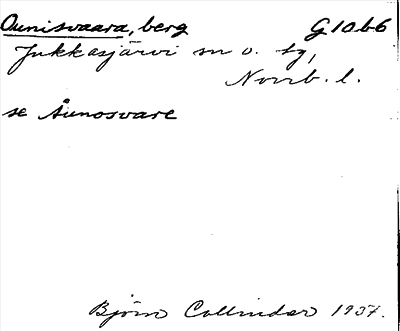 Aunisvaara, berg G10b6
Jukkasjärvi sn o. tg,
Norrb. l.
se Åunosvare
Björn Collinder 1957.